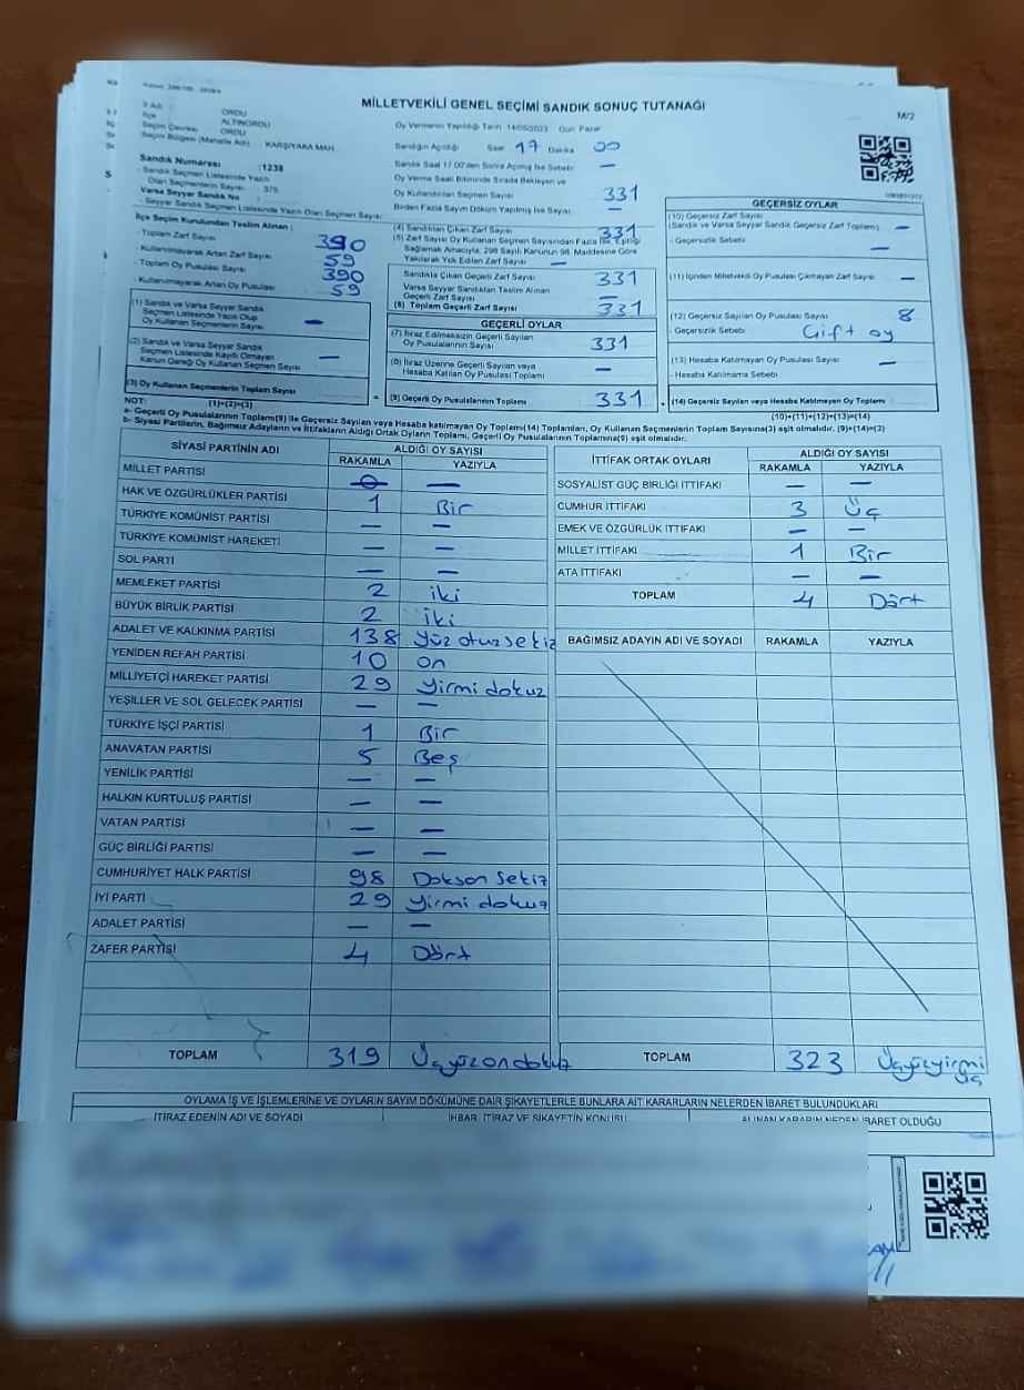 MİLLETVEKİLİ GENEL SEÇİMİ SANDIK SONUÇ TUTANAĞI
M/2
İl Adı : ORDU
İlçe ALTINORDU
Seçim Çevresi ORDU
Seçim Bölgesi (Mahalle Adı) : KARŞIYAKA MAH.
Oy Vermenin Yapıldığı Tarih 14/05/2023 Gün Pazar
Sandığın Açıldığı Saat 17 Dakika 00
Sandık Saat 17.00'den Sonra Açılmış İse Sebebi —
Oy Verme Saati Bitiminde Sırada Bekleyen ve
Oy Kullandırılan Seçmen Sayısı 331
Birden Fazla Sayım Döküm Yapılmış İse Sayısı —
Sandık Numarası :1238
- Sandık Seçmen Listesinde Yazılı
Olan Seçmenlerin Sayısı : 375
Varsa Seyyar Sandık No
- Seyyar Sandık Seçmen Listesinde Yazılı Olan Seçmen Sayısı
İlçe Seçim Kurulundan Teslim Alınan :
- Toplam Zarf Sayısı 390
- Kullanılmayarak Artan Zarf Sayısı 59
- Toplam Oy Pusulası Sayısı 390
- Kullanılmayarak Artan Oy Pusulası 59
(1) Sandık ve Varsa Seyyar Sandık
Seçmen Listesinde Yazılı Olup
Oy Kullanan Seçmenlerin Sayısı —
(2) Sandık ve Varsa Seyyar Sandık
Seçmen Listesinde Kayıtlı Olmayan
Kanun Gereği Oy Kullanan Seçmen Sayısı —
(3) Oy Kullanan Seçmenlerin Toplam Sayısı
(1)+(2)=(3)
(4) Sandıktan Çıkan Zarf Sayısı 331
(5) Zarf Sayısı Oy Kullanan Seçmen Sayısından Fazla İse, Eşitliği
Sağlamak Amacıyla, 298 Sayılı Kanunun 98. Maddesine Göre
Yakılarak Yok Edilen Zarf Sayısı —
Sandıkta Çıkan Geçerli Zarf Sayısı 331
Varsa Seyyar Sandıktan Teslim Alınan
Geçerli Zarf Sayısı —
(6) Toplam Geçerli Zarf Sayısı 331
GEÇERLİ OYLAR
(7) İtiraz Edilmeksizin Geçerli Sayılan
Oy Pusulalarının Sayısı 331
(8) İtiraz Üzerine Geçerli Sayılan veya
Hesaba Katılan Oy Pusulası Toplamı —
(9) Geçerli Oy Pusulalarının Toplamı 331
GEÇERSİZ OYLAR
(10) Geçersiz Zarf Sayısı
(Sandık ve Varsa Seyyar Sandık Geçersiz Zarf Toplamı) —
- Geçersizlik Sebebi —
(11) İçinden Milletvekili Oy Pusulası Çıkmayan Zarf Sayısı —
(12) Geçersiz Sayılan Oy Pusulası Sayısı 8
- Geçersizlik Sebebi : Çift oy
(13) Hesaba Katılmayan Oy Pusulası Sayısı —
- Hesaba Katılmama Sebebi
(14) Geçersiz Sayılan veya Hesaba Katılmayan Oy Toplamı
(10)+(11)+(12)+(13)=(14)
NOT:
a- Geçerli Oy Pusulalarının Toplamı(9) ile Geçersiz Sayılan veya Hesaba katılmayan Oy Toplamı(14) Toplamları, Oy Kullanan Seçmenlerin Toplam Sayısına(3) eşit olmalıdır. (9)+(14)=(3)
b- Siyasi Partilerin, Bağımsız Adayların ve İttifakların Aldığı Ortak Oyların Toplamı, Geçerli Oy Pusulalarının Toplamına(9) eşit olmalıdır.
SİYASİ PARTİNİN ADI ALDIĞI OY SAYISI
RAKAMLA YAZIYLA
MİLLET PARTİSİ 0 —
HAK VE ÖZGÜRLÜKLER PARTİSİ 1 Bir
TÜRKİYE KOMÜNİST PARTİSİ — —
TÜRKİYE KOMÜNİST HAREKETİ — —
SOL PARTİ — —
MEMLEKET PARTİSİ 2 iki
BÜYÜK BİRLİK PARTİSİ 2 iki
ADALET VE KALKINMA PARTİSİ 138 Yüz otuz sekiz
YENİDEN REFAH PARTİSİ 10 on
MİLLİYETÇİ HAREKET PARTİSİ 29 Yirmi dokuz
YEŞİLLER VE SOL GELECEK PARTİSİ — —
TÜRKİYE İŞÇİ PARTİSİ 1 Bir
ANAVATAN PARTİSİ 5 Beş
YENİLİK PARTİSİ — —
HALKIN KURTULUŞ PARTİSİ — —
VATAN PARTİSİ — —
GÜÇ BİRLİĞİ PARTİSİ — —
CUMHURİYET HALK PARTİSİ 98 Doksan Sekiz
İYİ PARTİ 29 Yirmi dokuz
ADALET PARTİSİ — —
ZAFER PARTİSİ 4 Dört
TOPLAM 319 Üçyüzondokuz
İTTİFAK ORTAK OYLARI ALDIĞI OY SAYISI
RAKAMLA YAZIYLA
SOSYALİST GÜÇ BİRLİĞİ İTTİFAKI — —
CUMHUR İTTİFAKI 3 Üç
EMEK VE ÖZGÜRLÜK İTTİFAKI — —
MİLLET İTTİFAKI 1 Bir
ATA İTTİFAKI — —
TOPLAM 4 Dört
BAĞIMSIZ ADAYIN ADI VE SOYADI RAKAMLA YAZIYLA
TOPLAM 323 Üçyüzyirmi
üç
OYLAMA İŞ VE İŞLEMLERİNE VE OYLARIN SAYIM DÖKÜMÜNE DAİR ŞİKAYETLERLE BUNLARA AİT KARARLARIN NELERDEN İBARET BULUNDUKLARI
İTİRAZ EDENİN ADI VE SOYADI İHBAR, İTİRAZ VE ŞİKAYETİN KONUSU ALINAN KARARIN NEDEN İBARET OLDUĞU